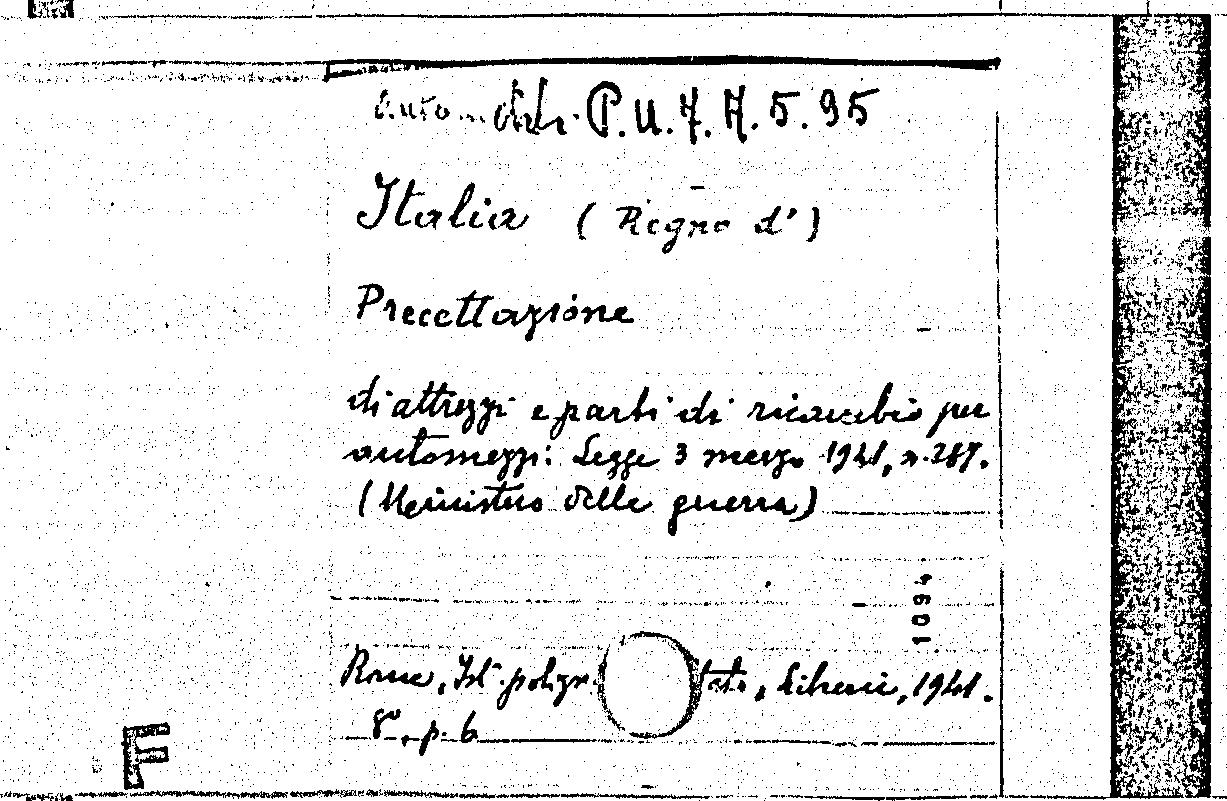 P.U.7.7.5.95
Italia (Regno d')
Precettazione
di attrezzi e parti di ricambio per
automezzi: Legge 3 marzo 1941, n. 267.
(Ministero delle guerra)
1094
Roma, Ist. poligr. Stato, Libreria, 1941.
8°, p. 6
F